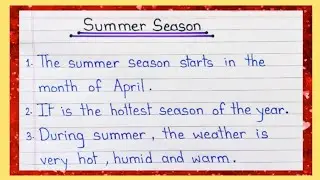 Summer Season
1. The summer season starts in the
month of April.
2. It is the hottest season of the year.
3. During summer, the weather is
very hot, humid and warm.